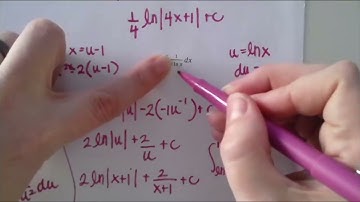 1/4 ln|4x+1| + c
x = u-1
2(u-1)
u = lnx
du =
dx
|u| - 2(-1u⁻¹) + c
2 ln|u| + 2/u + c
2 ln|x+1| + 2/(x+1) + c
u² du